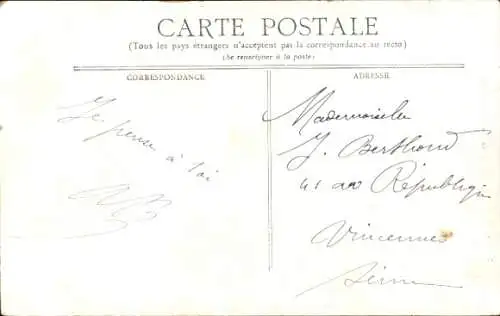 CARTE POSTALE
(Tous les pays étrangers n'acceptent pas la correspondance au recto)
(Se renseigner à la poste)
CORRESPONDANCE
Je pense à toi
ADRESSE
Mademoiselle
J. Berthoud
41 République
Vincennes
Seine